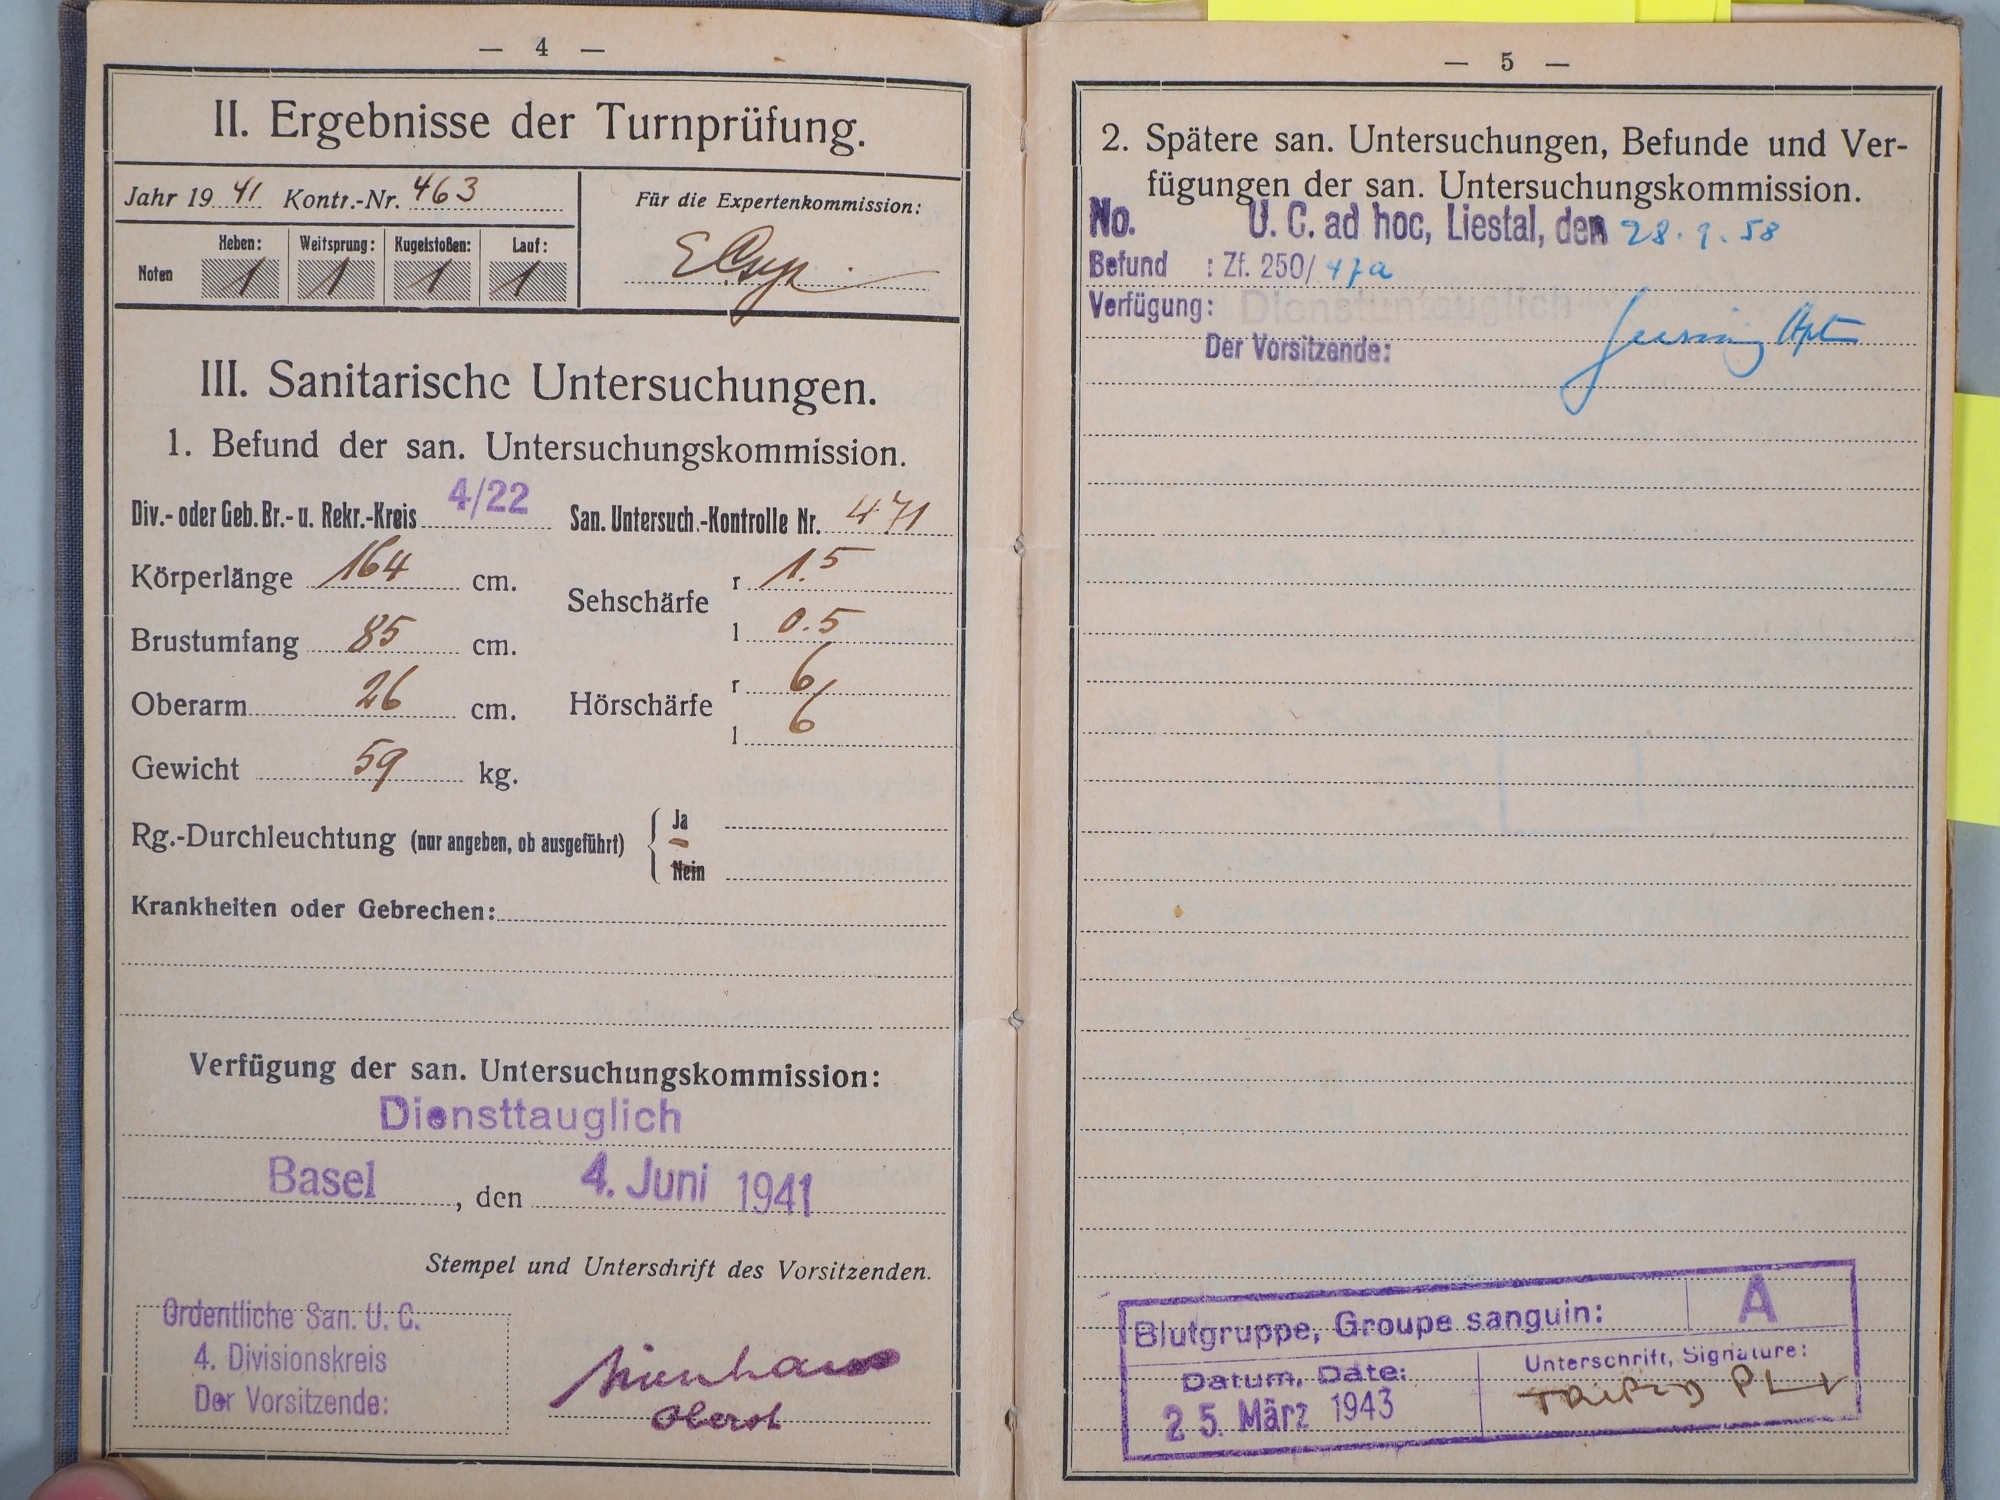 — 4 —
II. Ergebnisse der Turnprüfung.
Jahr 19 41 Kontr.-Nr. 463
Für die Expertenkommission:
Heben: Weitsprung: Kugelstoßen: Lauf:
Noten 1 1 1 1
III. Sanitarische Untersuchungen.
1. Befund der san. Untersuchungskommission.
Div.- oder Geb. Br.- u. Rekr.-Kreis 4/22 San. Untersuch.-Kontrolle Nr. 471
Körperlänge 164 cm.
Sehschärfe r 1.5
l 0.5
Brustumfang 85 cm.
Oberarm 26 cm.
Hörschärfe r 6/
l 6
Gewicht 59 kg.
Rg.-Durchleuchtung (nur angeben, ob ausgeführt) { Ja
Nein
Krankheiten oder Gebrechen:
Verfügung der san. Untersuchungskommission:
Diensttauglich
Basel, den 4. Juni 1941
Stempel und Unterschrift des Vorsitzenden.
Ordentliche San. U. C.
4. Divisionskreis
Der Vorsitzende:
Oberst
— 5 —
2. Spätere san. Untersuchungen, Befunde und Ver-
fügungen der san. Untersuchungskommission.
No. U. C. ad hoc, Liestal, den 28. 9. 58
Befund : Zf. 250/47a
Verfügung: Dienstuntauglich
Der Vorsitzende:
Blutgruppe, Groupe sanguin: A
Datum, Date:
25. März 1943
Unterschrift, Signature: